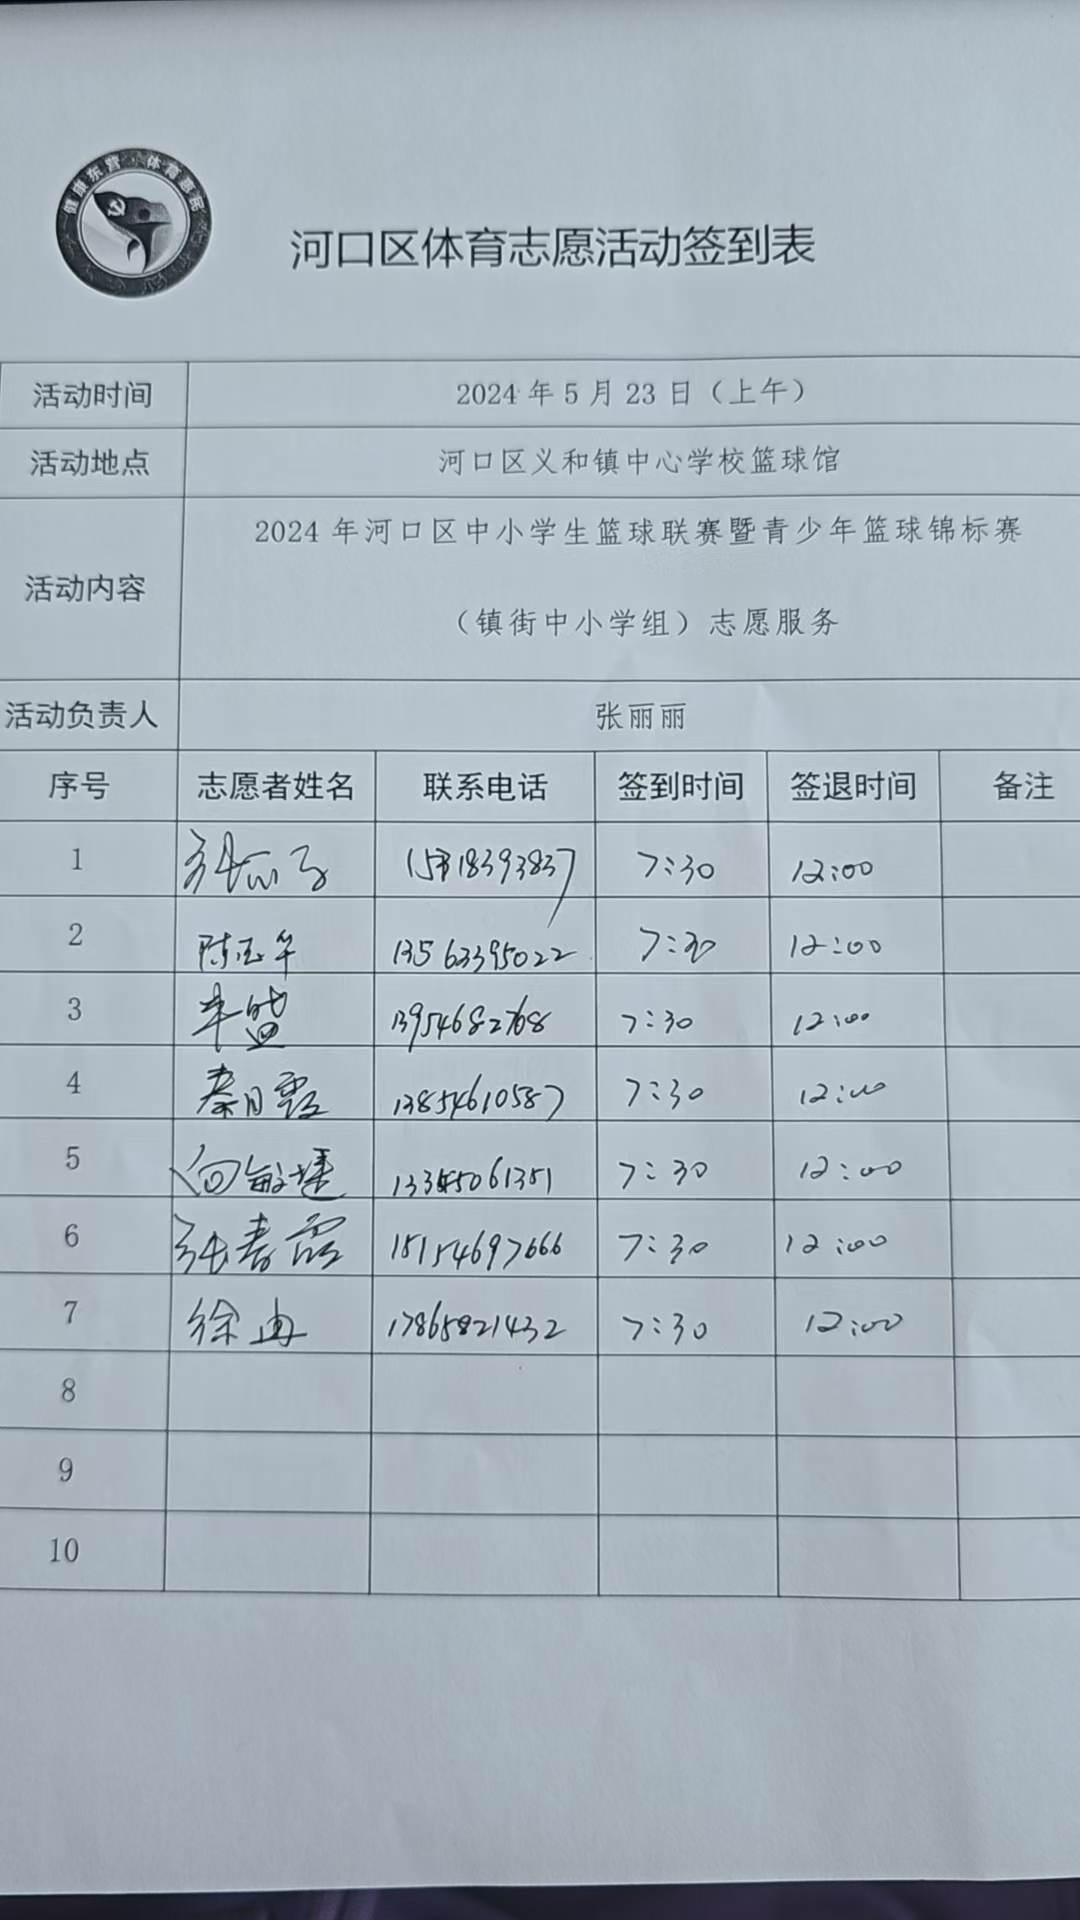 健康东营·体育惠民
河口区体育志愿活动签到表
活动时间 2024年5月23日（上午）
活动地点 河口区义和镇中心学校篮球馆
活动内容 2024年河口区中小学生篮球联赛暨青少年篮球锦标赛
（镇街中小学组）志愿服务
活动负责人 张丽丽
序号 志愿者姓名 联系电话 签到时间 签退时间 备注
1 7:30 12:00
2 陈玉华 13563395022 7:30 12:00
3 13954682768 7:30 12:00
4 秦月霞 13854610587 7:30 12:00
5 7:30 12:00
6 张春霞 18154697666 7:30 12:00
7 徐冉 17865821432 7:30 12:00
8
9
10